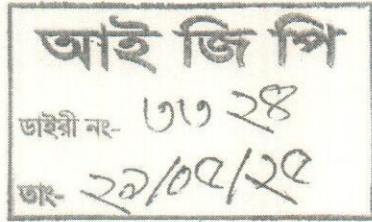 আই জি পি
ডাইরী নং- ৩৩২৪
তাং- ২৯/০৫/২৫